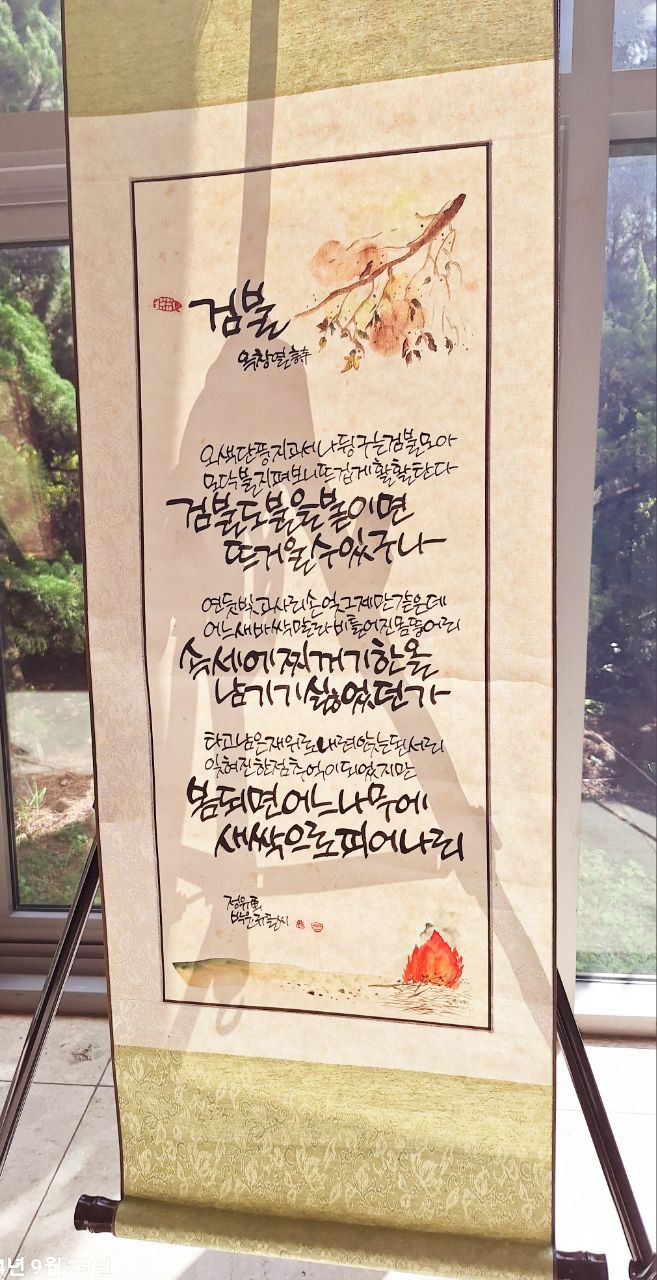 검불
옥창열 시조
오색단풍 지과서 나뒹구는 검불 모아
모닥불 지펴보니 뜨겁게 활활 탄다
검불도 불을 붙이면
뜨거울 수 있구나
연둣빛 고사리손 엊그제만 같은데
어느새 바싹 말라 비틀어진 몸뚱어리
속세에 찌꺼기 한 올
남기기 싫었던가
타고 남은 재 위로 내려앉는 된서리
잊혀진 한 점 추억이 되었지만
봄 되면 어느 나무에
새싹으로 피어나리
9월 25일